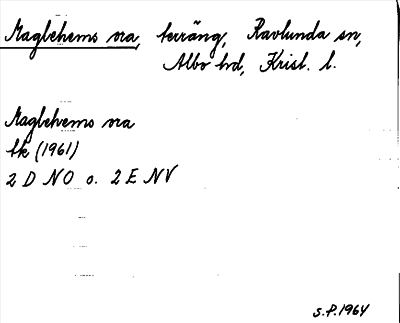 Maglehems ora, terräng, Ravlunda sn,
Albo hd, Krist. l.
Maglehems ora
tk (1961)
2 D NO o. 2 E NV
S.P. 1964